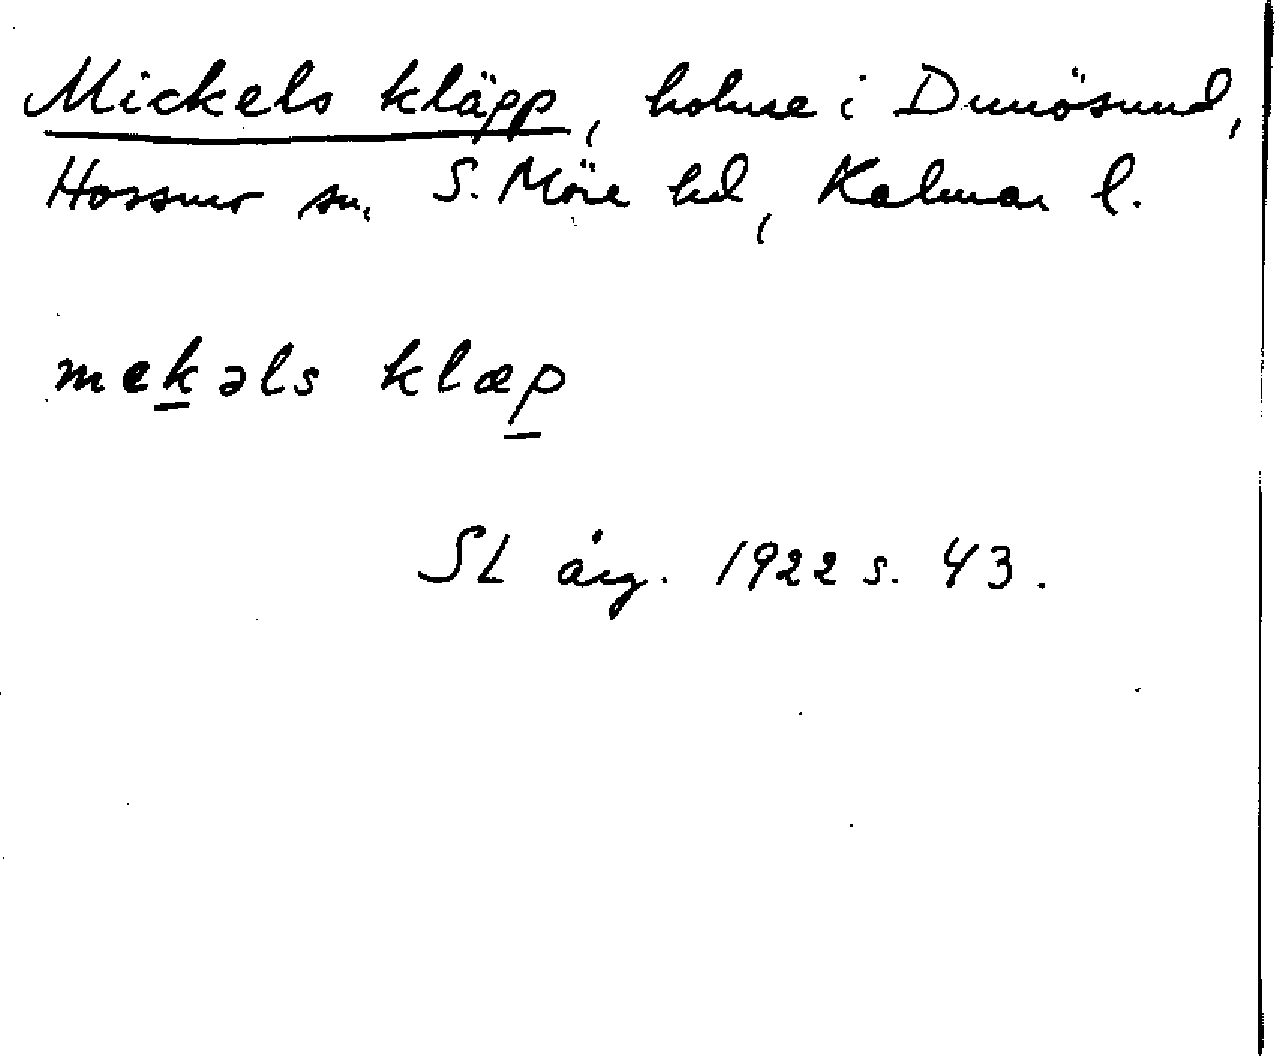 Mickels kläpp, holme i Dunösund,
Hossmo sn, S. Möre hd, Kalmar l.
mek̲əls klæp̲
SL årg. 1922 s. 43.